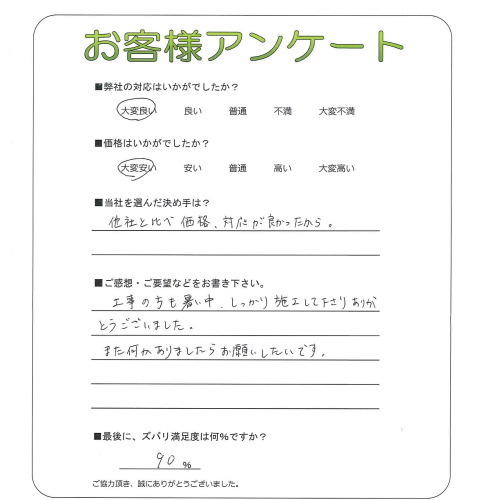 お客様アンケート
■弊社の対応はいかがでしたか？
大変良い 良い 普通 不満 大変不満
■価格はいかがでしたか？
大変安い 安い 普通 高い 大変高い
■当社を選んだ決め手は？
他社と比べ価格、対応が良かったから。
■ご感想・ご要望などをお書き下さい。
工事の方も暑い中、しっかり施工して下さりありが
とうございました。
また何かありましたらお願いしたいです。
■最後に、ズバリ満足度は何%ですか？
90 %
ご協力頂き、誠にありがとうございました。